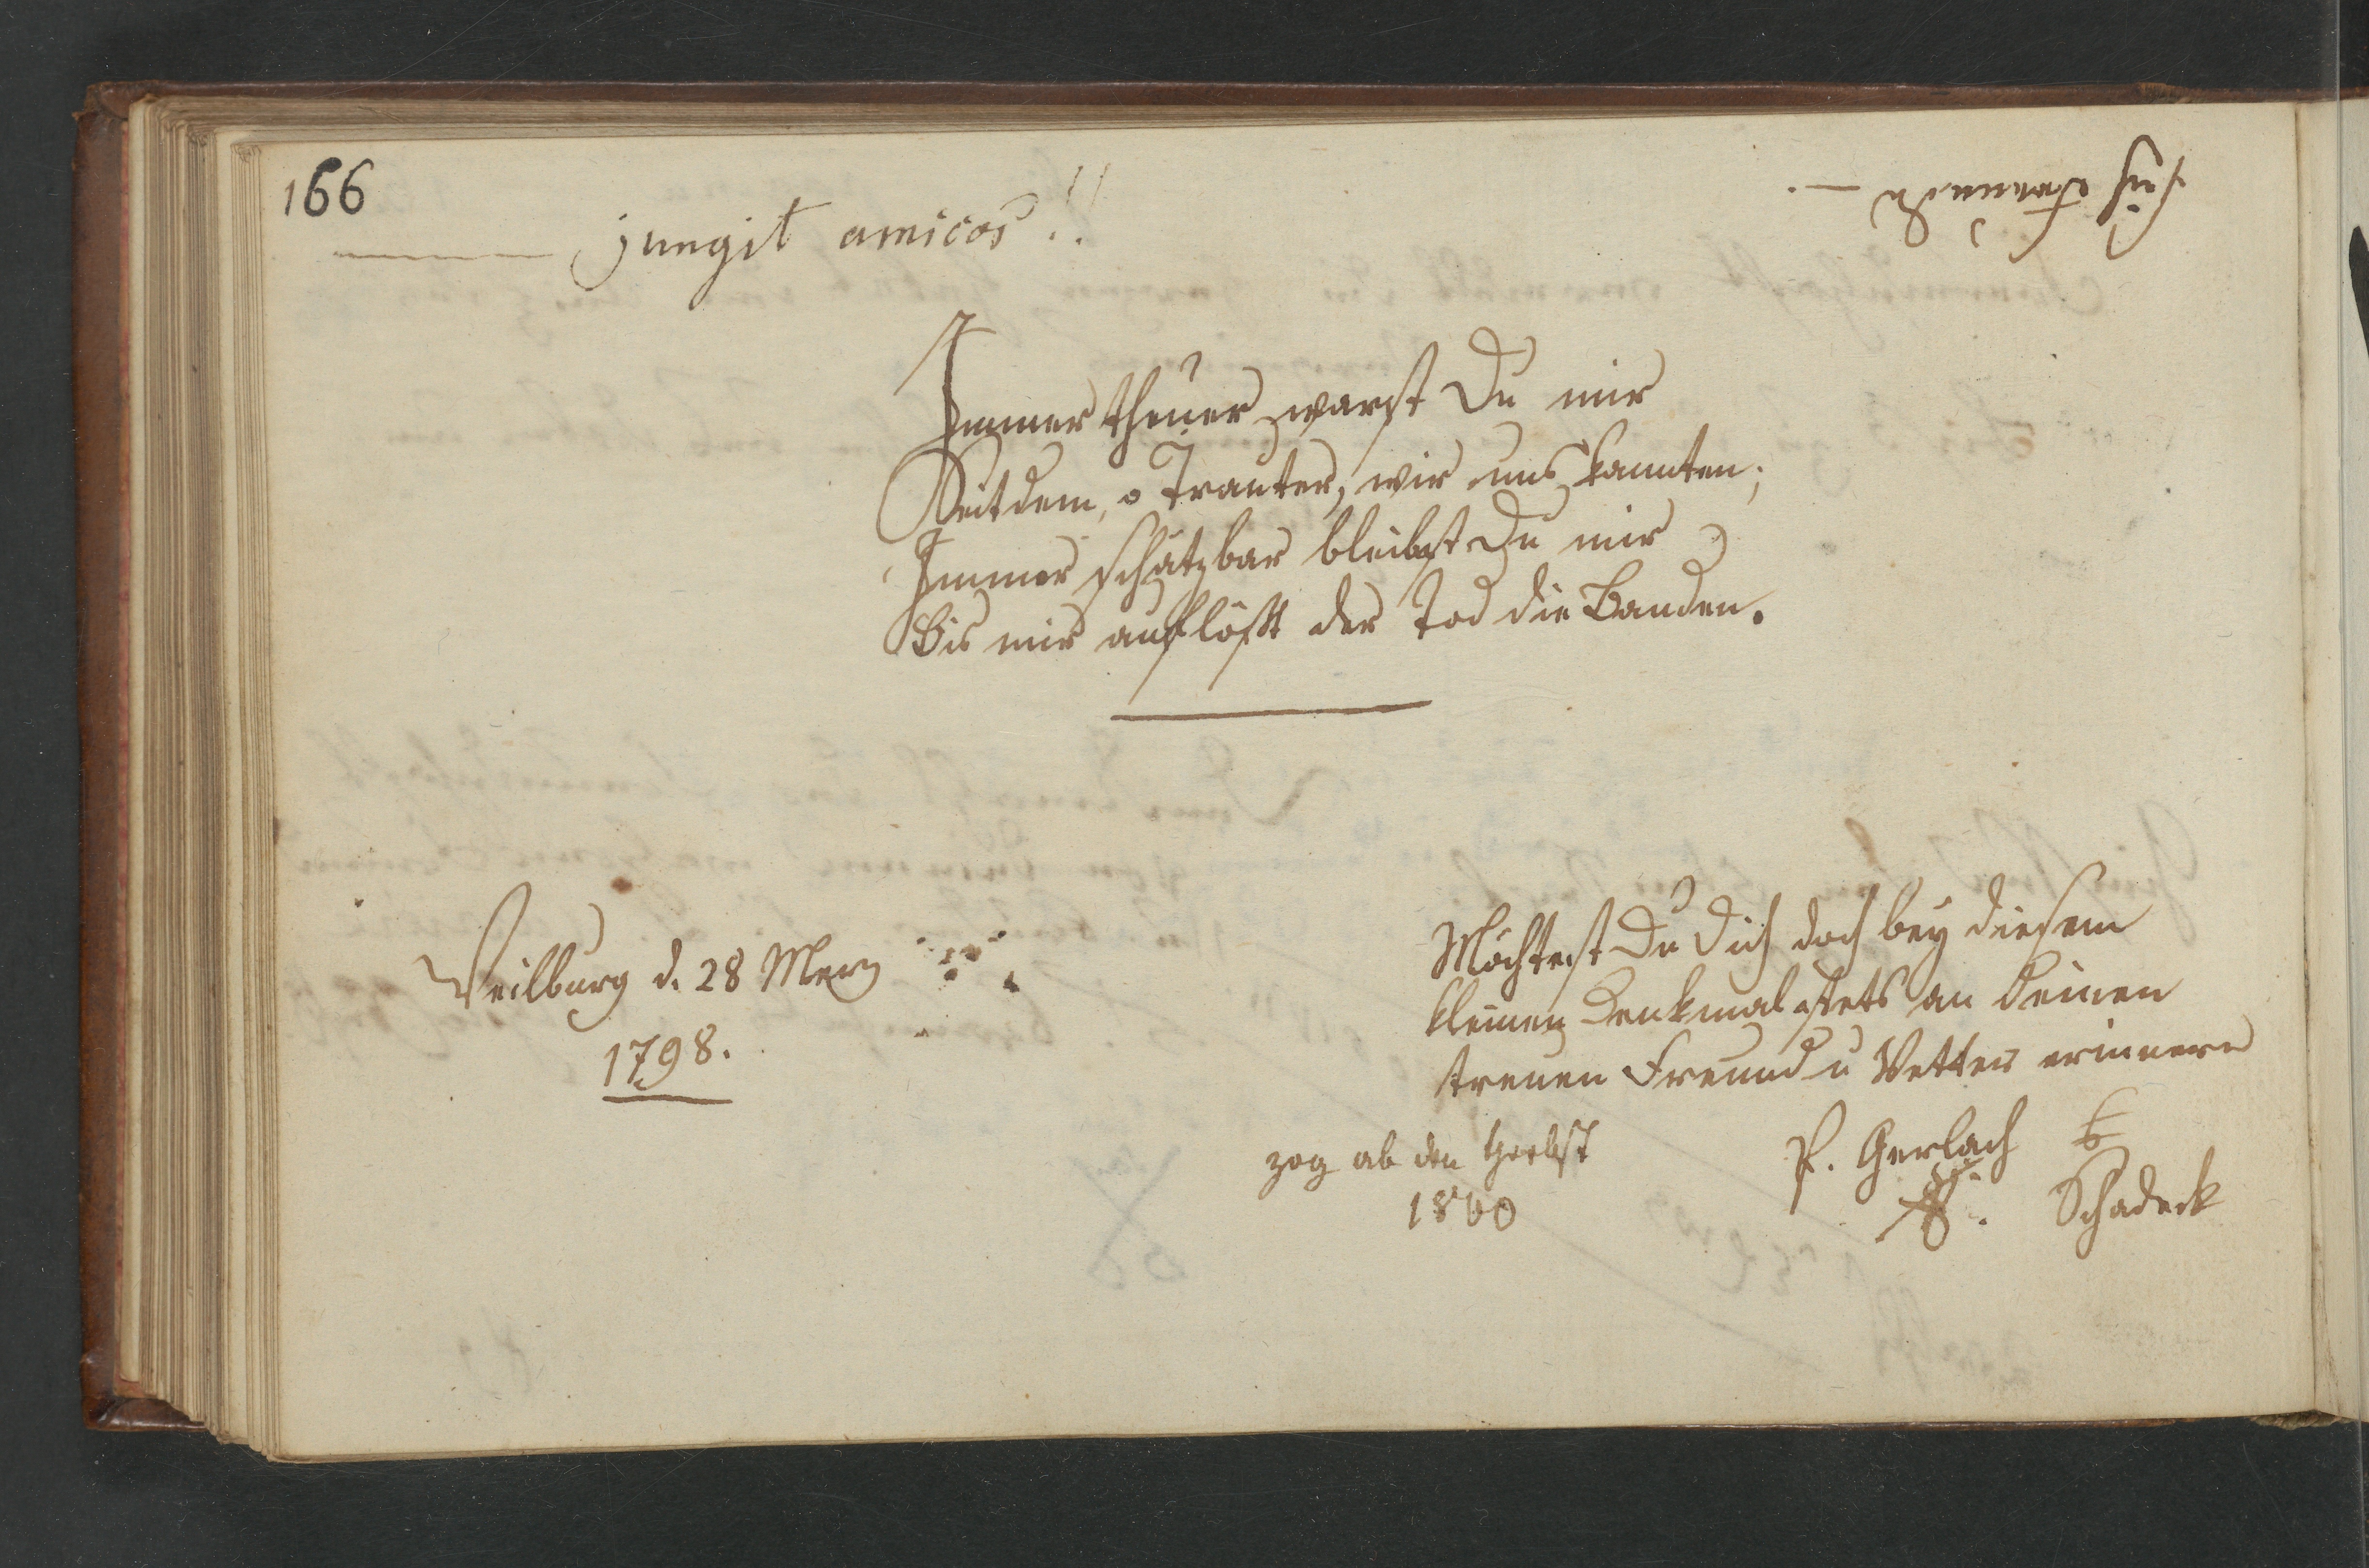 166
jungit amicos!!
Immer theuer warst Du mir
Seitdem, o Trauter, wir uns kannten;
Immer schätzbar bleibst Du mir
Bis mir auflößt der Tod die Banden.
Weilburg d. 28 Merz
1798.
Möchtest Du Dich doch bey diesem
kleinen Denkmal stets an Deinen
treuen Freund u Vetter erinnern
zog ab den Herbst
1800
P. Gerlach
Schadeck